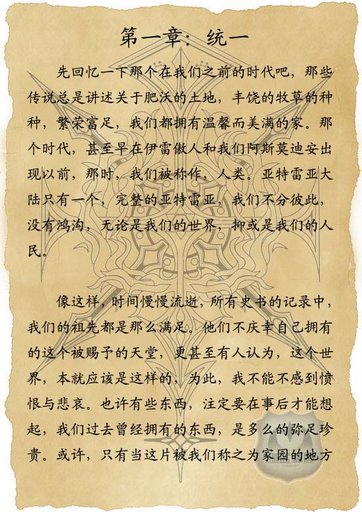 第一章：统一
先回忆一下那个在我们之前的时代吧，那些
传说总是讲述关于肥沃的土地，丰饶的牧草的种
种，繁荣富足，我们都拥有温馨而美满的家。那
个时代，甚至早在伊雷傲人和我们阿斯莫迪安出
现以前，那时，我们被称作，人类。亚特雷亚大
陆只有一个，完整的亚特雷亚，我们不分彼此，
没有鸿沟，无论是我们的世界，抑或是我们的人
民。
像这样，时间慢慢流逝，所有史书的记录中，
我们的祖先都是那么满足。他们不庆幸自己拥有
的这个被赐予的天堂，更甚至有人认为，这个世
界，本就应该是这样的，为此，我不能不感到愤
恨与悲哀。也许有些东西，注定要在事后才能想
起，我们过去曾经拥有的东西，是多么的弥足珍
贵。或许，只有当这片被我们称之为家园的地方